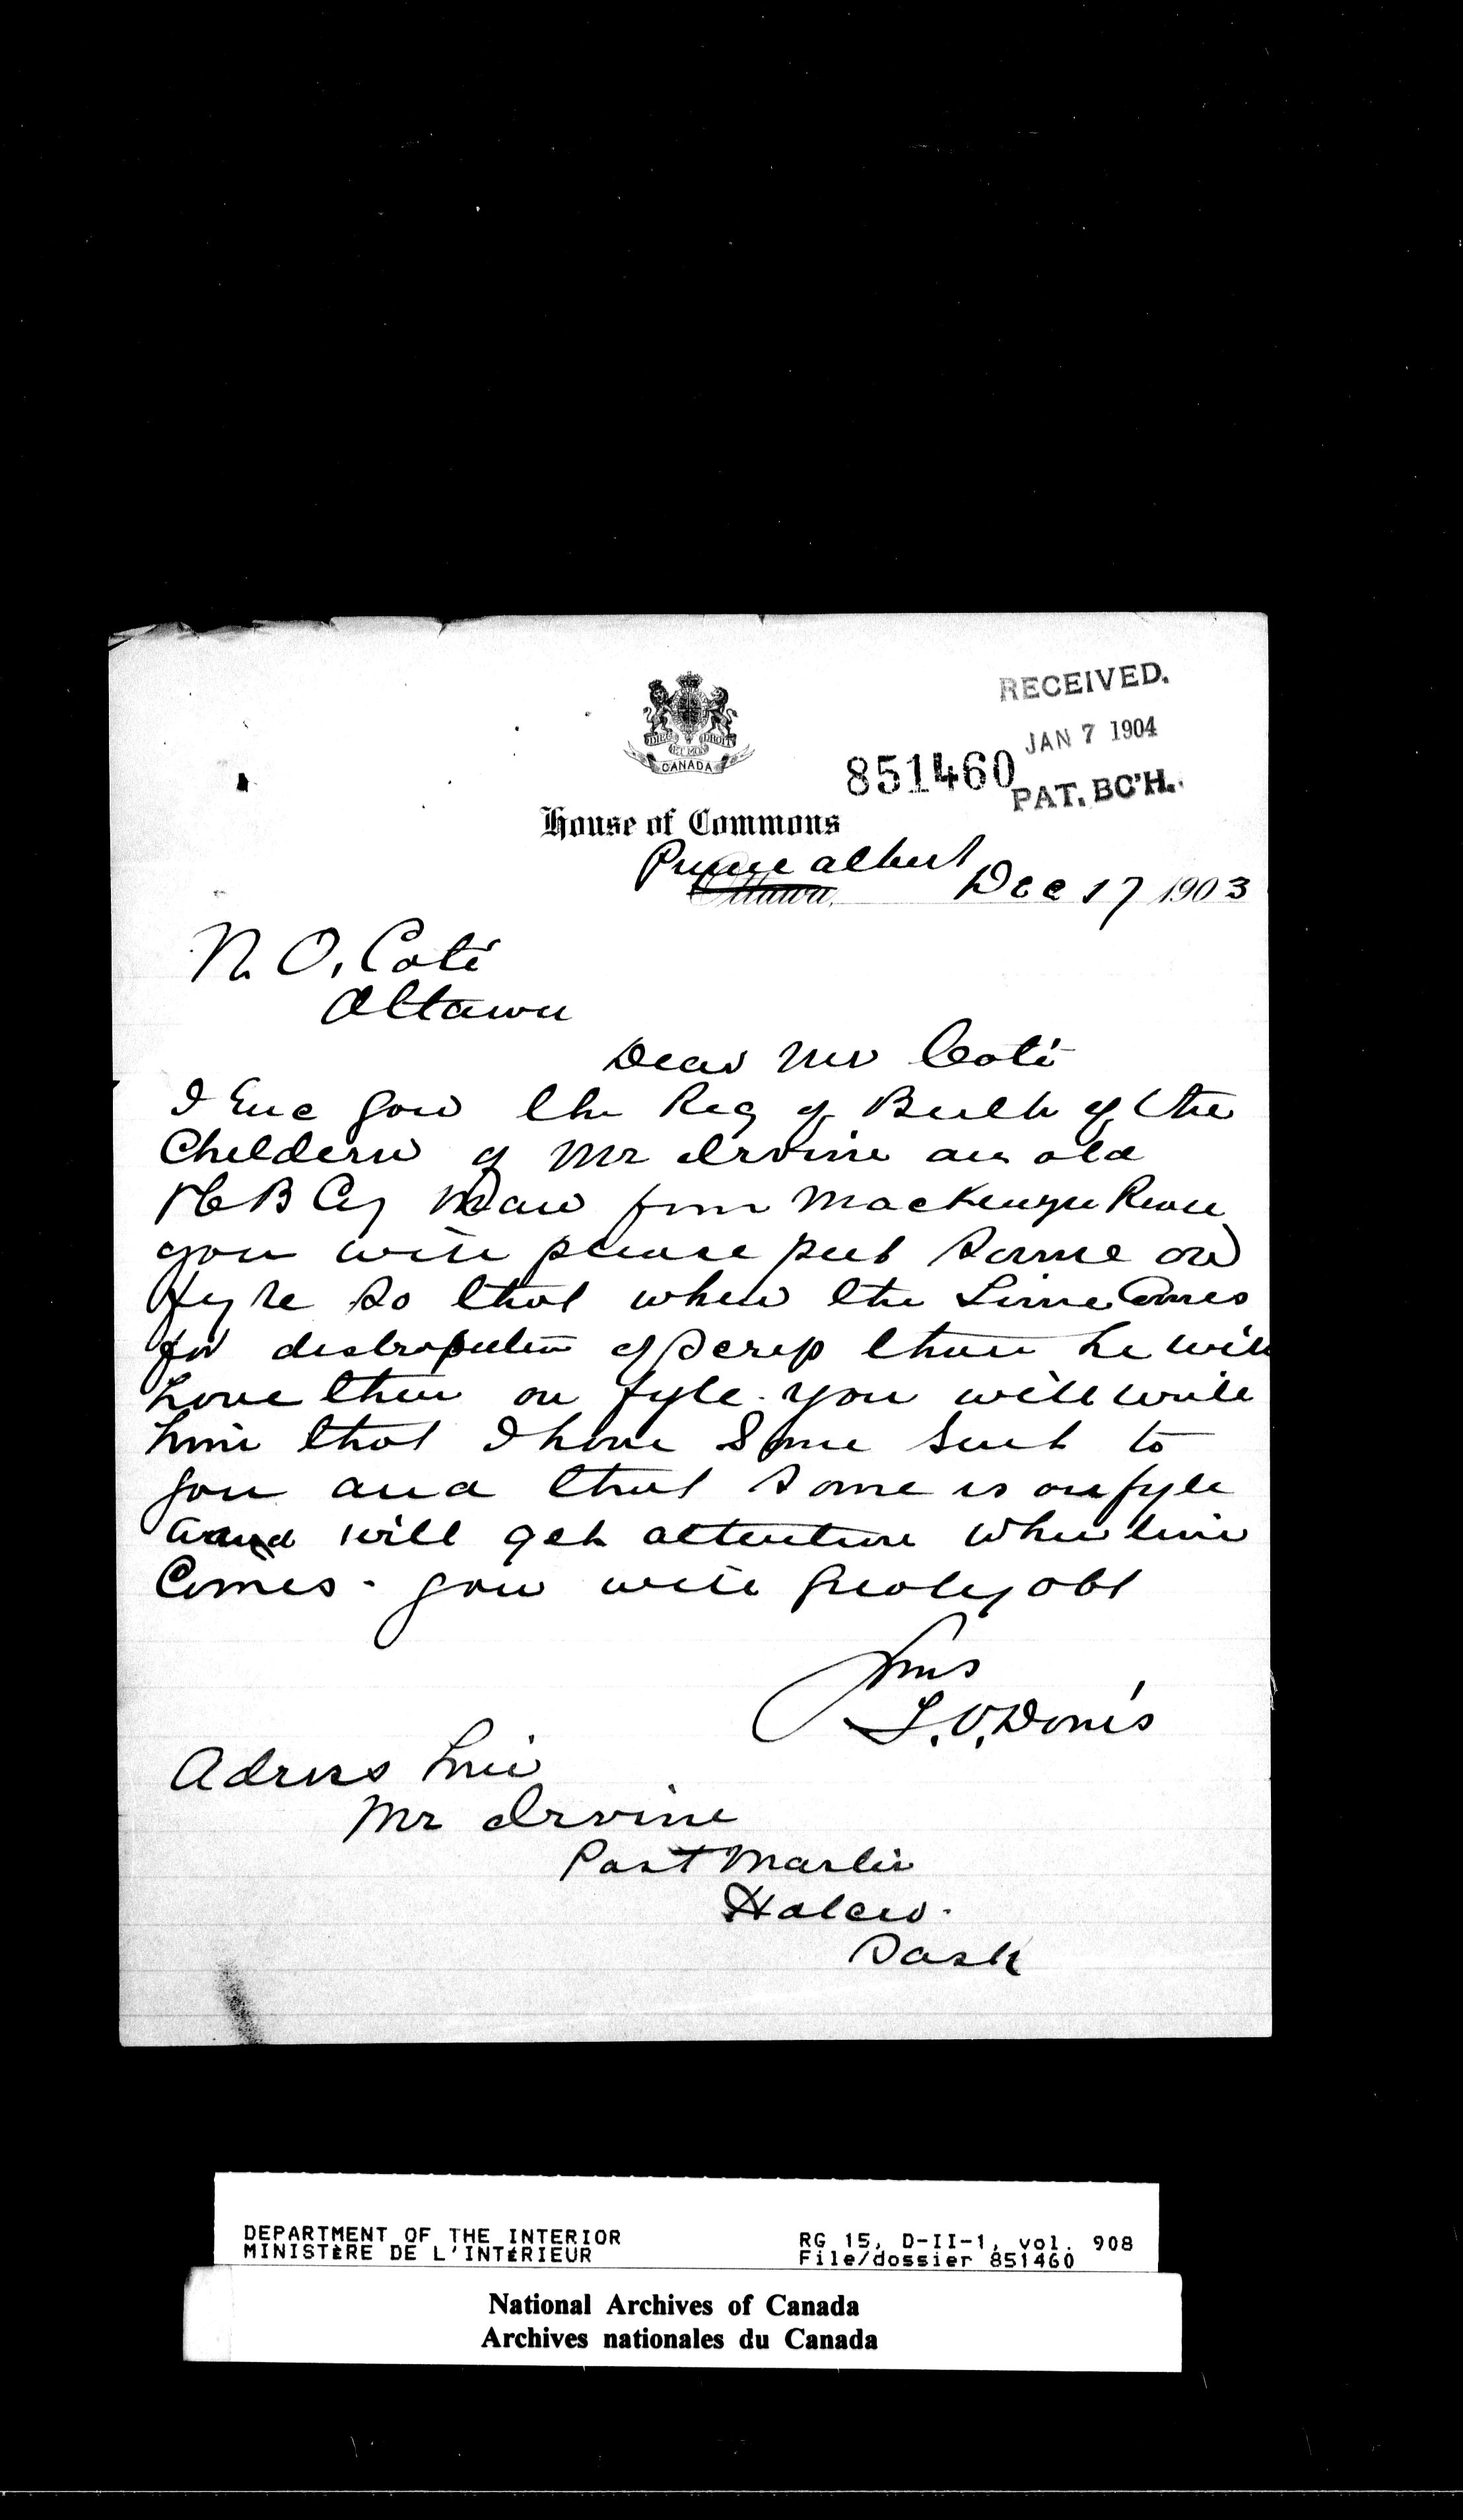 RECEIVED.
JAN 7 1904
PAT. BC'H.
851460
DIEU ET MON DROIT
CANADA
House of Commons
Prince albert
Ottawa, Dec 17 1903
N. O. Coté
Ottawa
Dear Mr Coté
I Enc you the Reg of Birth of the
Childern of Mr Irvine an old
H B Cy Man from Mackenzie River
you will please put same on
fyle so that when the time Comes
for distrobution of Scrip there he will
have them on fyle. you will write
him that I have Same sent to
you and that same is on fyle
and will get attention when time
Comes - you will greatly obl
Yours
T. O. Davis
Adress him
Mr Irvine
Post Master
Halcro.
Sask
DEPARTMENT OF THE INTERIOR
MINISTÈRE DE L'INTÉRIEUR
RG 15, D-II-1, vol. 908
File/dossier 851460
National Archives of Canada
Archives nationales du Canada